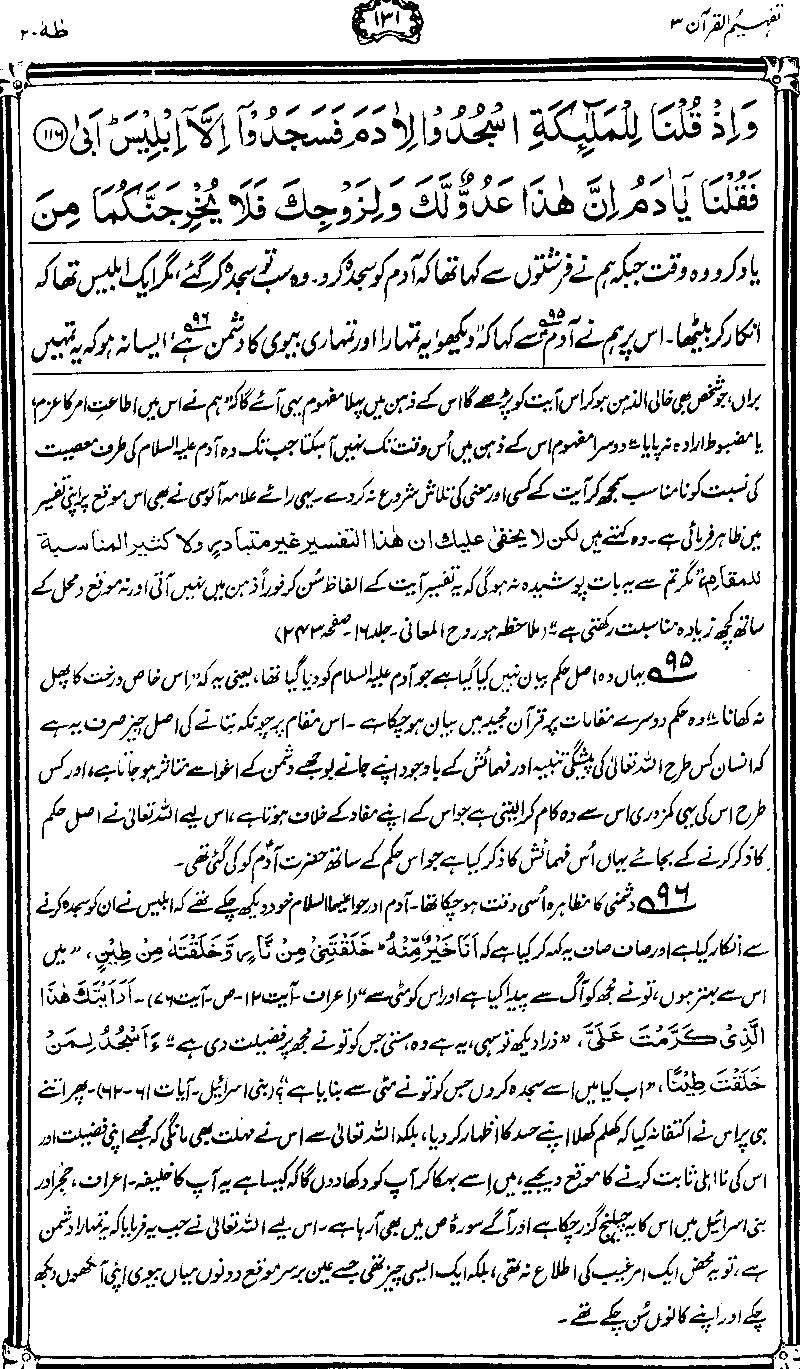 تفہیم القرآن ۳
۱۳۱
طٰہٰ ۲۰
وَاِذْ قُلْنَا لِلْمَلٰٓئِكَةِ اسْجُدُوْا لِاٰدَمَ فَسَجَدُوْٓا اِلَّآ اِبْلِيْسَ ؕ اَبٰى ﴿۱۱۶﴾
فَقُلْنَا يٰٓاٰدَمُ اِنَّ هٰذَا عَدُوٌّ لَّكَ وَلِزَوْجِكَ فَلَا يُخْرِجَنَّكُمَا مِنَ
یاد کرو وہ وقت جبکہ ہم نے فرشتوں سے کہا تھا کہ آدم کو سجدہ کرو۔ وہ سب تو سجدہ کر گئے، مگر ایک ابلیس تھا کہ
انکار کر بیٹھا۔ اس پر ہم نے آدم۹۵ سے کہا کہ ”دیکھو، یہ تمہارا اور تمہاری بیوی کا دشمن ہے۹۶، ایسا نہ ہو کہ یہ تمہیں
براں، جو شخص بھی خالی الذہن ہو کر اس آیت کو پڑھے گا اس کے ذہن میں پہلا مفہوم یہی آئے گا کہ ”ہم نے اس میں اطاعتِ امر کا عزم،
یا مضبوط ارادہ نہ پایا“ دوسرا مفہوم اس کے ذہن میں اُس وقت تک نہیں آ سکتا جب تک وہ آدم علیہ السلام کی طرف معصیت
کی نسبت کو نامناسب سمجھ کر آیت کے کسی اور معنی کی تلاش شروع نہ کر دے۔ یہی رائے علامہ آلوسی نے بھی اس موقع پر اپنی تفسیر
میں ظاہر فرمائی ہے۔ وہ کہتے ہیں لکن لا یخفیٰ علیك ان ھٰذا التفسیر غیر متبادر ولا کثیر المناسبة
للمقام، ”مگر تم سے یہ بات پوشیدہ نہ ہوگی کہ یہ تفسیر آیت کے الفاظ سُن کر فوراً ذہن میں نہیں آتی اور نہ موقع و محل کے
ساتھ کچھ زیادہ مناسبت رکھتی ہے“ (ملاحظہ ہو روح المعانی۔ جلد ۱۶۔ صفحہ ۲۴۳)
۹۵ یہاں وہ اصل حکم بیان نہیں کیا گیا ہے جو آدم علیہ السلام کو دیا گیا تھا، یعنی یہ کہ ”اِس خاص درخت کا پھل
نہ کھانا“ وہ حکم دوسرے مقامات پر قرآن مجید میں بیان ہو چکا ہے۔ اس مقام پر چونکہ بتانے کی اصل چیز صرف یہ ہے
کہ انسان کس طرح اللہ تعالیٰ کی پیشگی تنبیہ اور فہمائش کے باوجود اپنے جانے بوجھے دشمن کے اغوا سے متاثر ہو جاتا ہے، اور کس
طرح اس کی یہی کمزوری اس سے وہ کام کرا لیتی ہے جو اس کے اپنے مفاد کے خلاف ہوتا ہے، اس لیے اللہ تعالیٰ نے اصل حکم
کا ذکر کرنے کے بجائے یہاں اُس فہمائش کا ذکر کیا ہے جو اس حکم کے ساتھ حضرت آدم کو کی گئی تھی۔
۹۶ دشمنی کا مظاہرہ اُسی وقت ہو چکا تھا۔ آدم اور حوا علیہما السلام خود دیکھ چکے تھے کہ ابلیس نے ان کو سجدہ کرنے
سے انکار کیا ہے اور صاف صاف یہ کہہ کر کیا ہے کہ اَنَا خَيْرٌ مِّنْهُ ۚ خَلَقْتَنِيْ مِنْ نَّارٍ وَّخَلَقْتَهٗ مِنْ طِيْنٍ، ”میں
اس سے بہتر ہوں، تو نے مجھ کو آگ سے پیدا کیا ہے اور اس کو مٹی سے“ (اعراف۔ آیت ۱۲۔ ص۔ آیت ۷۶)۔ اَرَاَيْتَكَ هٰذَا
الَّذِيْ كَرَّمْتَ عَلَيَّ، ”ذرا دیکھ تو سہی، یہ ہے وہ ہستی جس کو تو نے مجھ پر فضیلت دی ہے“ ءَاَسْجُدُ لِمَنْ
خَلَقْتَ طِيْنًا، ”اب کیا میں اسے سجدہ کروں جس کو تو نے مٹی سے بنایا ہے“؟ (بنی اسرائیل۔ آیات ۶۱-۶۲)۔ پھر اتنے
ہی پر اس نے اکتفا نہ کیا کہ کھلم کھلا اپنے حسد کا اظہار کر دیا، بلکہ اللہ تعالیٰ سے اس نے مہلت بھی مانگی کہ مجھے اپنی فضیلت اور
اس کی نا اہلی ثابت کرنے کا موقع دیجیے، میں اِسے بہکا کر آپ کو دکھا دوں گا کہ کیسا ہے یہ آپ کا خلیفہ۔ اعراف، حجر اور
بنی اسرائیل میں اس کا یہ چیلنج گزر چکا ہے اور آگے سورۂ ص میں بھی آ رہا ہے۔ اس لیے اللہ تعالیٰ نے جب یہ فرمایا کہ یہ تمہارا دشمن
ہے، تو یہ محض ایک امرِ غیب کی اطلاع نہ تھی، بلکہ ایک ایسی چیز تھی جسے عین برسرِ موقع دونوں میاں بیوی اپنی آنکھوں دیکھ
چکے اور اپنے کانوں سُن چکے تھے۔